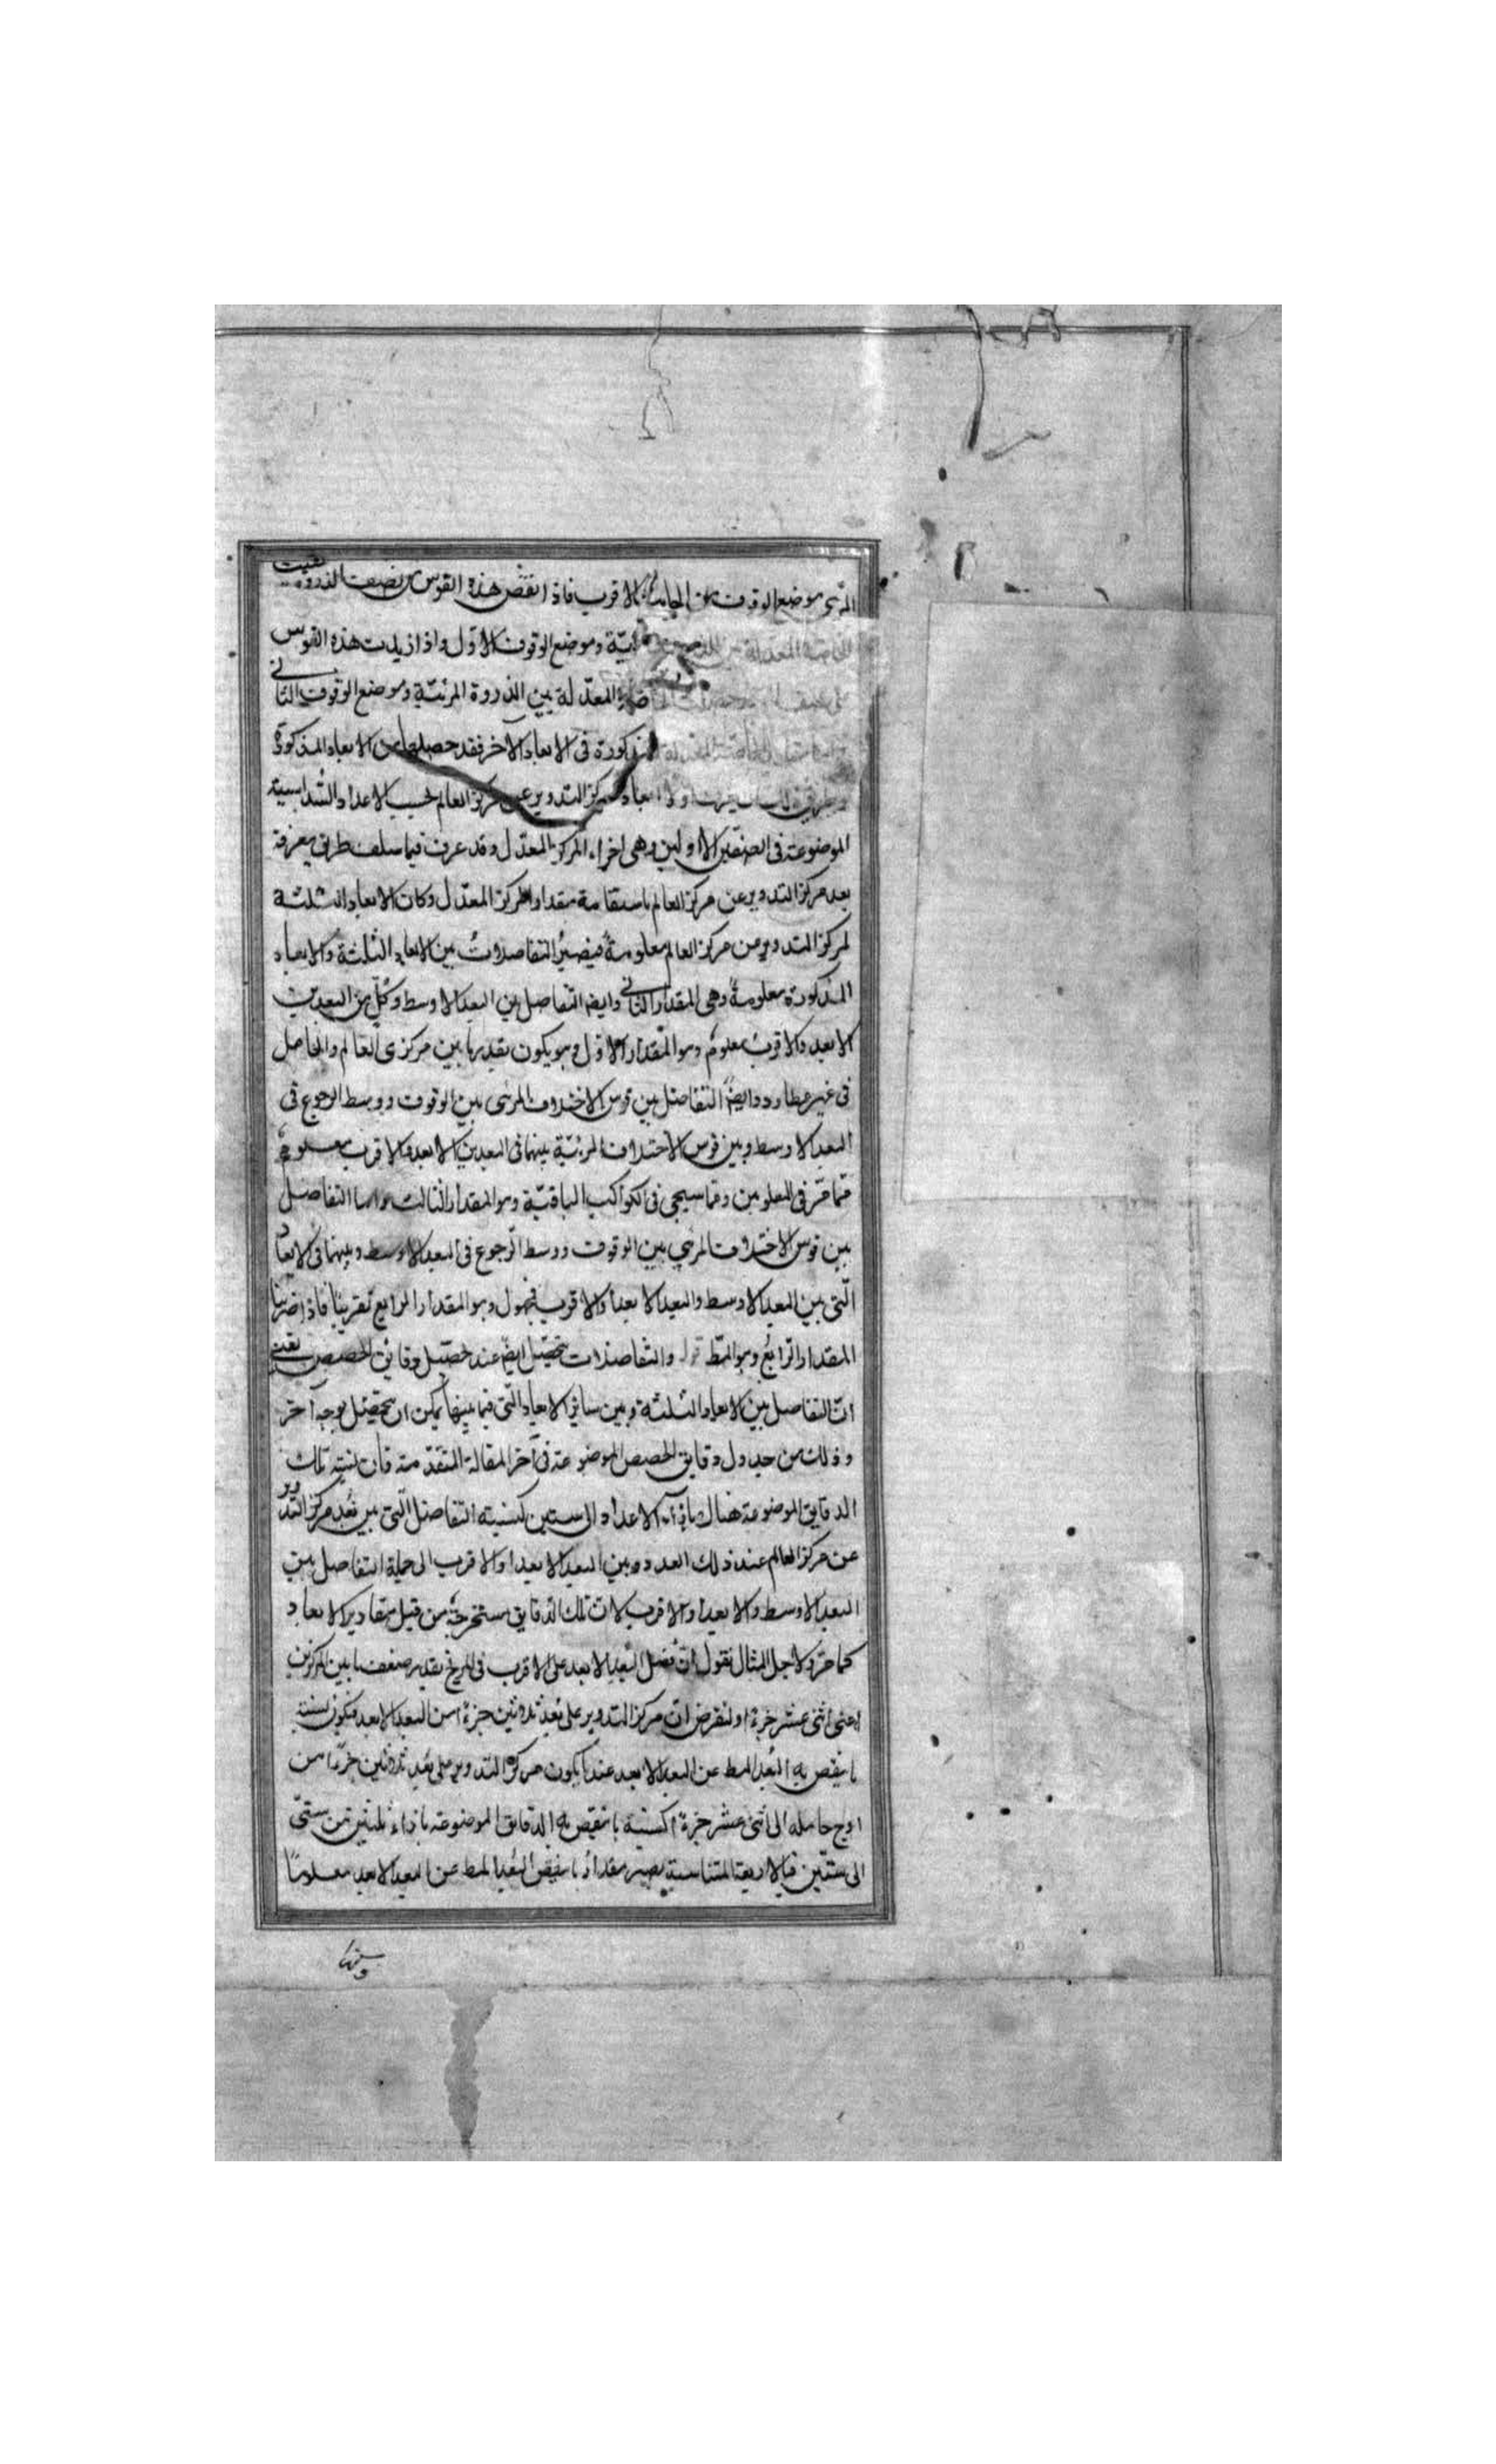 المرئى وموضع الوقوف من الجانب الاقرب فاذا نقص هذه القوس من نصف الدور بقيت
الخاصة المعدلة بين الذروة المرئيّة وموضع الوقوف الاوّل واذا زيدت هذه القوس
على نصف الدور حصلت الخاصة المعدّلة بين الذروة المرئيّة وموضع الوقوف الثانى
الخاصة المعدلة المذكورة فى الابعاد الاخر فقد حصلها من الابعاد المذكورة
ابعاد مركز التدوير عن مركز العالم بحسب الاعداد السّداسيّة
الموضوعة فى الصفّين الاولين وهى اجزاء المركز المعدّل وقد عرف فيما سلف طريق معرفة
بعد مركز التدوير عن مركز العالم باستقامة بمقدار المركز المعدّل وكان الابعاد الثلثة
لمركز التدوير من مركز العالم معلومةً فيصيرُ التفاضلاتُ بين الابعاد الثلثة والابعاد
المذكورة معلومةً وهى المقدار الثانى وايضا التّفاضل بين البعد الاوسط وكلٍّ من البعدين
الابعد والاقرب معلومٌ وهو المقدار الاوّل وهو يكون بقدر ما بين مركزى العالم والحامل
فى غير عطارد وايضاً التفاضل بين قوس الاختلاف المرئى بين الوقوف ووسط الرجوع فى
البعد الاوسط وبين قوس الاختلاف المرئيّة بينهما فى البعدين الابعد والاقرب معلومة
ممّا مرّ فى العلويين وممّا سيجى فى الكواكب الباقيّة وهو المقدار الثالث واما التفاضل
بين قوس الاختلاف المرئى بين الوقوف ووسط الرّجوع فى البعد الاوسط وبينهما فى الابعاد
الّتى بين البعد الاوسط والبعد الابعد او الاقرب فمجهول وهو المقدار الرابع تقريبا فاذا ضربنا
المقدار الرّابع وهو المط قوله والتفاضلات تتحصّل ايضا عند تحصّيل دقائق الحصص يعنى
انّ التفاضل بين الابعاد الثلثة وبين سائر الابعاد الّتى فيما بينها يمكن ان يتحصّل بوجه آخر
وذلك من جدول دقايق الحصص الموضوعة فى آخر المقالة المتقدّمة فان نسبة تلك
الدقايق الموضوعة هناك بازآء الاعداد الى ستين كنسبة التفاضل الّتى بين بُعد مركز التدوير
عن مركز العالم عند ذلك العدد وبين البعد الابعد او الاقرب الى جملة التفاضل بين
البعد الاوسط والابعد او الاقرب لانّ تلك الدّقايق مستخرجة من قبل مقادير الابعاد
كما مرّ ولاجل المثال نقول انّ فضل البُعد الابعد على الاقرب فى المريخ بقدر ضعف ما بين المركزين
اعنى اثنى عشر جزءا ولنفرض انّ مركز التدوير على بُعد ثلاثين جزءًا من البعد الابعد فيكون نسبة
ما ينقص به البُعد المط عن البعد الابعد عند ما يكون مركز التدوير على بُعد ثلاثين جزءًا من
اوج حامله الى اثنى عشر جزءًا كنسبة ما تنقيص به الدقايق الموضوعة بازاء ثلثين من ستيّن
الى ستّين فبالاربعة المتناسبة يصير مقدار ما ينقص البُعد المط عن البعد الابعد معلومًا